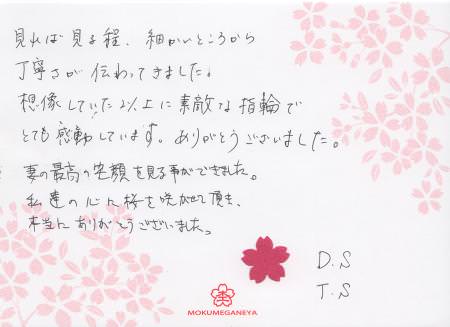 見れば見る程、細かいところから
丁寧さが伝わってきました。
想像していた以上に素敵な指輪で
とても感動しています。ありがとうございました。
妻の最高の笑顔を見る事ができました。
私達の心に桜を咲かせて頂き、
本当にありがとうございました。
D.S
T.S
MOKUMEGANEYA